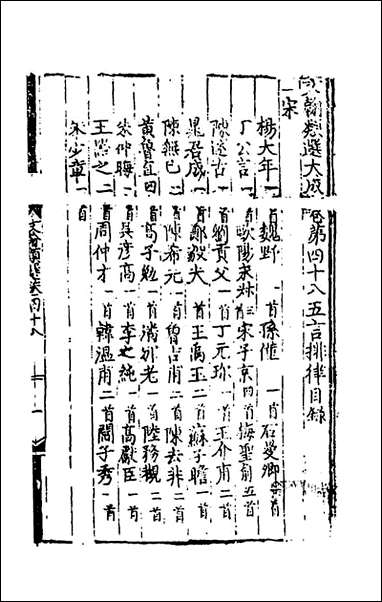 文翰類選大成卷第四十八五言排律目錄
宋
楊大年一首 魏野一首 孫僅一首 石曼卿首
丁公言一首 歐陽永叔三首 宋子京四首 梅聖俞五首
陳述古一首 劉貢父一首 丁元珍一首 王介甫二首
晁君成一首 鄭毅夫一首 王禹玉二首 蘇子瞻一首
陳無已二首 陳希元一首 曾吉甫二首 陳去非二首
黃魯直四首 高子勉一首 潘邠老一首 陸務觀二首
朱仲晦一首 吳彥高一首 李之純一首 高獻臣一首
王黙之二首 周仲才一首 韓溫甫二首 閻子秀一首
朱少章一首
文翰類選卷四十八